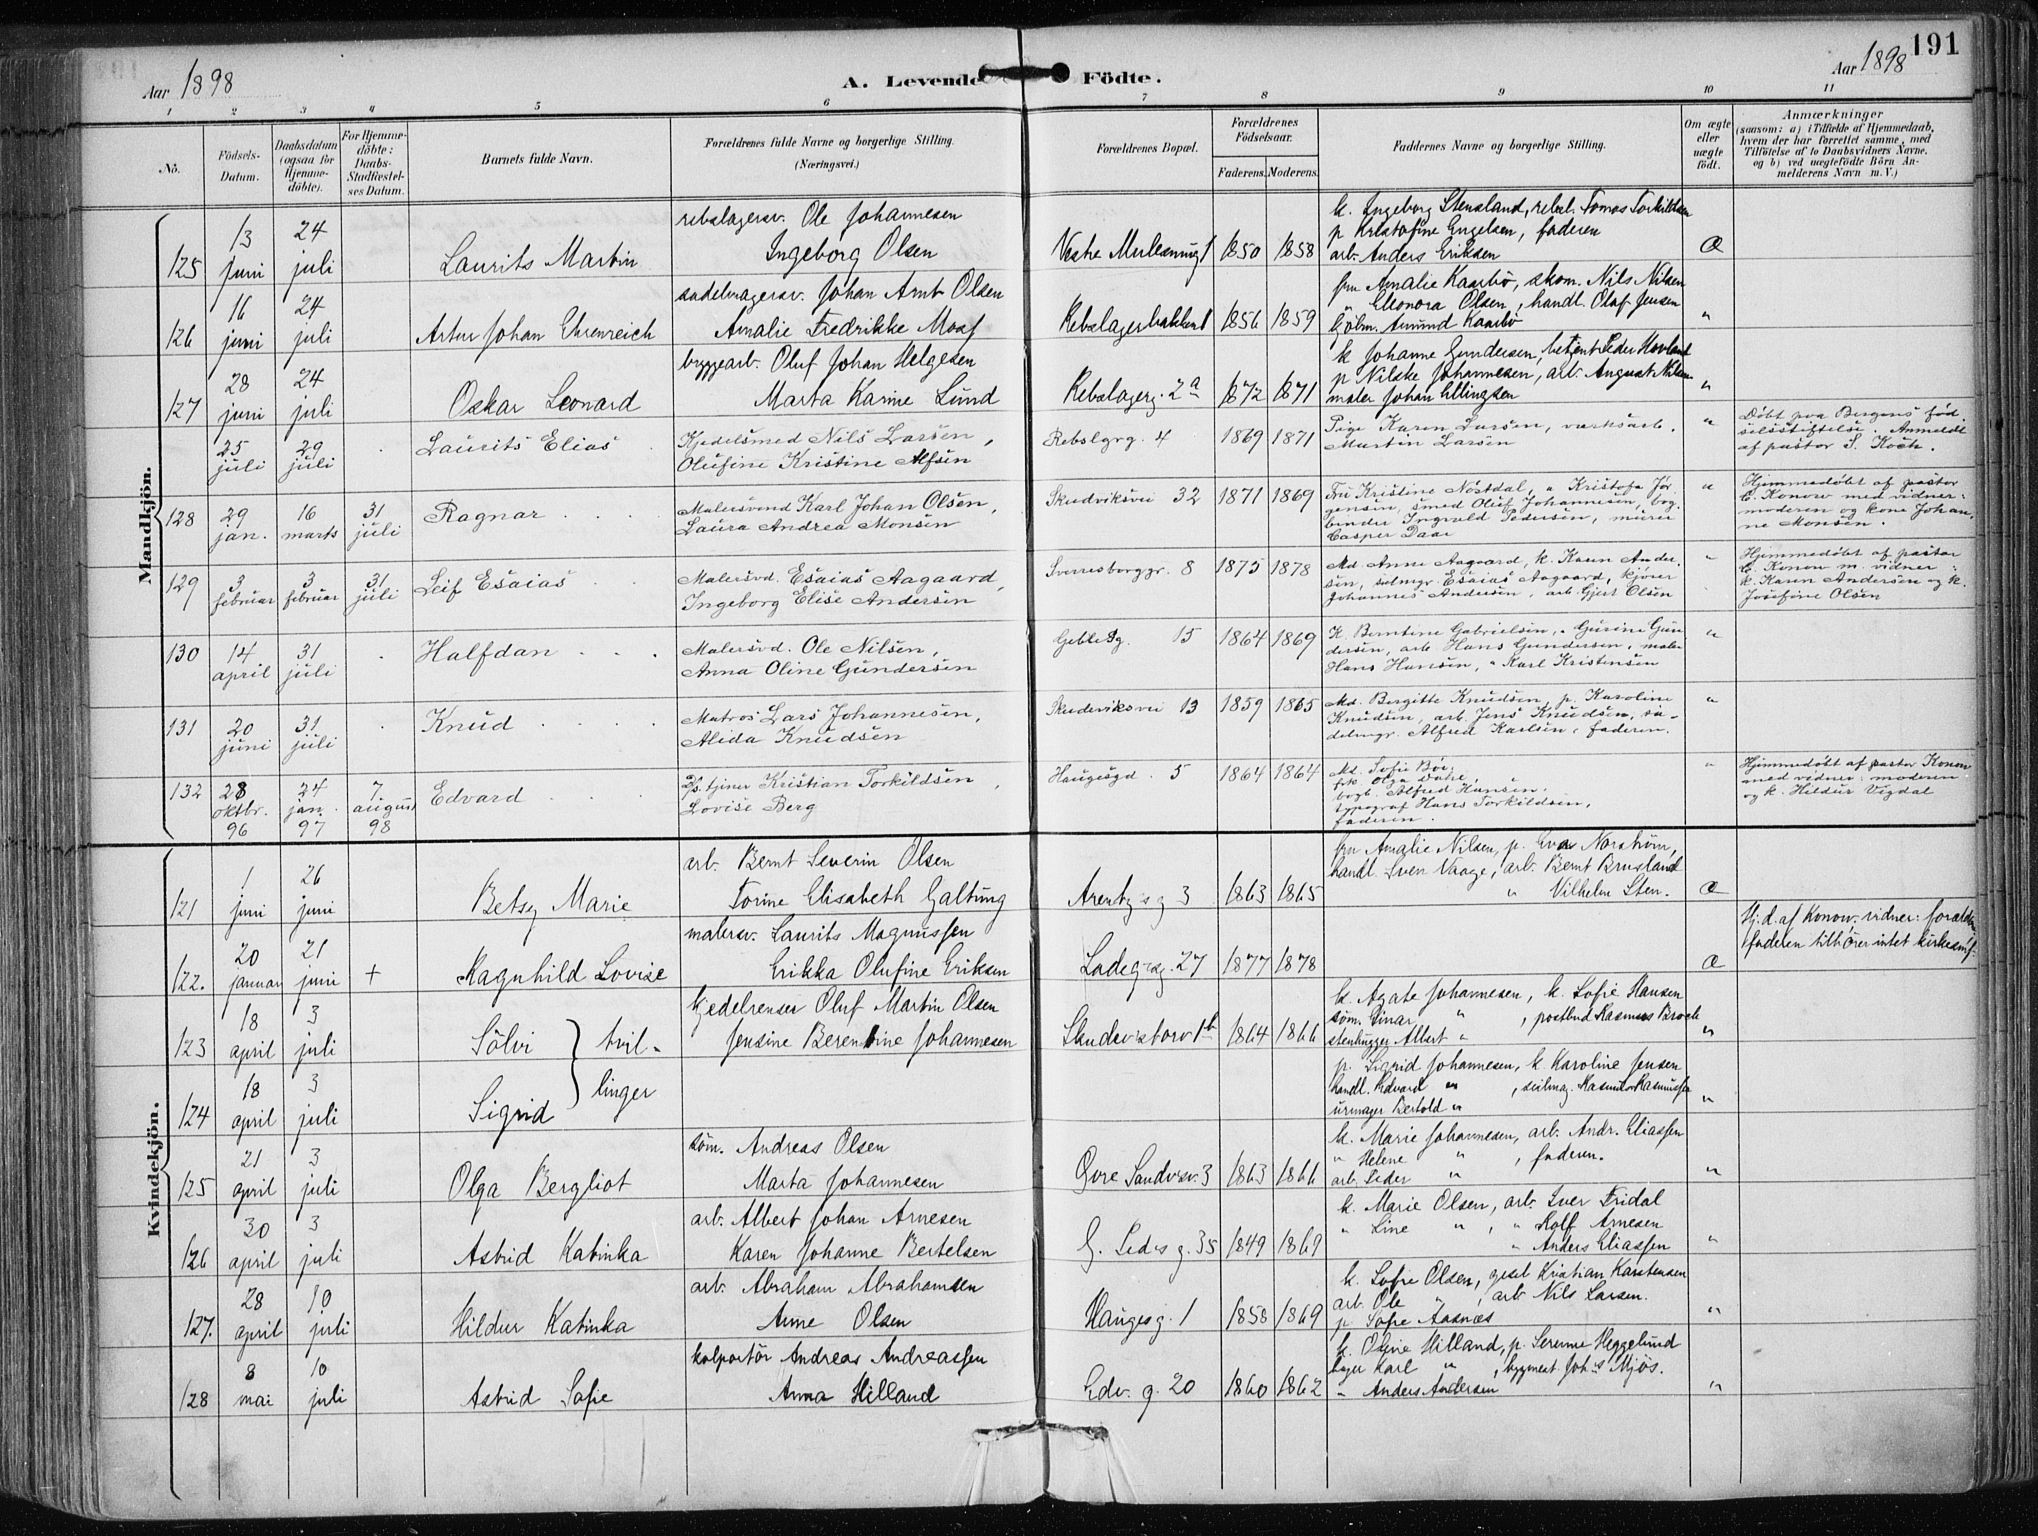 Aar 1898
A. Levende Födte.
Aar 1898
191
1 2 3 4 5 6 7 8 9 10 11
No.
Födsels-
Datum.
Daabsdatum
(ogsaa för
Hjemme-
döbte).
For Hjemme-
döbte:
Daabs-
Stadfæstel-
ses Datum.
Barnets fulde Navn.
Forældrenes fulde Navne og borgerlige Stilling.
(Næringsvei.)
Forældrenes Bopæl.
Forældrenes
Födselsaar.
Faderens. Moderens.
Faddernes Navne og borgerlige Stilling.
Om ægte
eller
uægte
födt.
Anmærkninger
(saasom: a) i Tilfælde af Hjemmedaab,
hvem der har forrettet samme, med
Tilföielse af to Daabsvidners Navne,
og b) ved uægtefödte Börn An-
melderens Navn m. V.)
Mandkjön.
125 13 juni 24 juli Laurits Martin
rebslagersv. Ole Johannesen
Ingeborg Olsen
1850 1858
k. Ingeborg Stensland, rebsl. Tomas Torkildsen
p Kristofine Engelsen, faderen
arb. Anders Eriksen
Æ
126 16 juni 24 juli Artur Johan Ehrenreich
sadelmagersv. Johan Arnt Olsen
Amalie Fredrikke Moss
Rebslagerbakken 1 1856 1859
fru Amalie Kaarbö, skom. Nils Nilsen
" Eleonora Olsen, handl. Olaf Jensen
kjöbm. Amund Kaarbö
"
127 28 juni 24 juli Oskar Leonard
byggearb. Oluf Johan Helgesen
Marta Karine Lund
Rebslagerg. 2a 1872 1871
k Johanne Gundersen, betjent Peder Hovland
p Nilske Johannesen, arb. August Nilsen
maler Johan Ellingsen
"
25 juli 29 juli Laurits Elias
Kjedelsmed Nils Larsen,
Olufine Kristine Alfsen
Rebslgrg. 4 1869 1871
Pige Karen Larsen, værksarb.
Martin Larsen
"
Döbt paa Bergens föd-
selsstiftelse. Anmeldt
af pastor S. Koch.
128 29 jan. 16 marts 31 juli Ragnar
Malersvend Karl Johan Olsen,
Laura Andrea Monsen
Skudviksvei 32 1871 1869
Fru Kristine Nöstdal, " Kristofa Jör
gensen, smed Oluf Johannesen, bog-
binder Ingvald Pedersen, murer
Casper Daae
"
Hjemmedöbt af pastor
C. Konow med vidner:
moderen og kone Johan-
ne Monsen.
129 3 februar 3 februar 31 juli Leif Esaias
Malersvd. Esaias Aagaard,
Ingeborg Elise Andersen
Sverresborggr. 8 1875 1878
Md Anne Aagaard, k. Karen Ander-
sen, selmgr. Esaias Aagaard, kjörer
Johannes Andersen, arb. Gjert Olsen
"
Hjemmedöbt af pastor
C. Konow m. vidner:
k. Karen Andersen og k.
Josefine Olsen
130 14 april 31 juli Halfdan
Malersvd. Ole Nilsen,
Anna Oline Gundersen
15 1864 1869
K. Berntine Gabrielsen, " Gurine Gun-
dersen, arb. Hans Gundersen, maler
Hans Hansen, " Karl Kristensen
"
131 20 juni 31 juli Knud
Matros Lars Johannesen,
Alida Knudsen
Skudeviksvei 13 1859 1865
Md. Bergitte Knudsen, p. Karoline
Knudsen, arb. Jens Knudsen, sa-
delmgr. Alfred Karlsen, faderen.
"
132 28 oktbr. 96 24 jan. 97 7 august 98 Edvard
Ps. tjener Kristian Torkildsen,
Lovise Berg
Haugesgd. 5 1864 1864
Md. Sofie Böe,
bogb. Alfred Hansen,
typograf Hans Torkildsen,
faderen.
"
Hjemmedöbt af pastor Konow
med vidner: moderen
og k. Hildur Vigdal
Kvindekjön.
121 1 juni 26 juni Betsy Marie
arb. Bernt Severin Olsen
Torine Elisabeth Galtung
Arentzs g 3 1863 1865
fru Amalie Nilsen, p. Eva Norström,
handl. Sven Vaage, arb. Bernt Brusland
" Vilhelm Sten.
Æ
122. 20 januar 21 juni + Ragnhild Lovise
malersv. Laurits Magnussen
Erikka Olufine Eriksen
Ladegrsg. 27 1877 1878
Æ
Hj. d. af Konow. vidner: forældr.
faderen tilhörer intet kirkesamf.
123 18 april 3 juli Sölvi } tvil-
kjedelrenser Oluf Martin Olsen
Jensine Berentine Johannesen
Skudevstorv 1b 1864 1866
k. Agate Johannesen, k. Sofie Hansen
söm. Einar " , postbud Rasmus Broch
stenhugger Albert "
"
124 18 april 3 juli Sigrid } linger
p. Sigrid Johannesen, k. Karoline Jensen
handl. Edvard " , seilmag. Rasmus Rasmussen
urmager Bertold "
"
125 21 april 3 juli Olga Bergliot
söm. Andreas Olsen
Marta Johannesen
Övre Sandvsv. 3 1863 1866
k. Marie Johannesen, arb. Andr. Eliassen
" Helene " , faderen.
arb. Peder "
"
126 30 april 3 juli Astrid Katinka
arb. Albert Johan Arnesen
Karen Johanne Bertelsen
35 1849 1869
k. Marie Olsen, arb. Iver Fridal
" Line " , " Rolf Arnesen
" Anders Eliassen
"
127. 28 april 10 juli Hildur Katinka
arb. Abraham Abrahamsen
Anne Olsen
Hauges g. 1 1858 1869
k. Sofie Olsen, gesel Kristian Karstensen
arb. Ole " , arb Nils Larsen.
p Sofie Aasnæs
"
128 8 mai 10 juli Astrid Sofie
kolportör Andreas Andreassen
Anna Hilland
Edv. g. 20 1860 1862
k. Oline Hilland, p. Serenne Heggelund
bager Karl " , bygmest. Johs Mjös.
" Anders Andersen
"